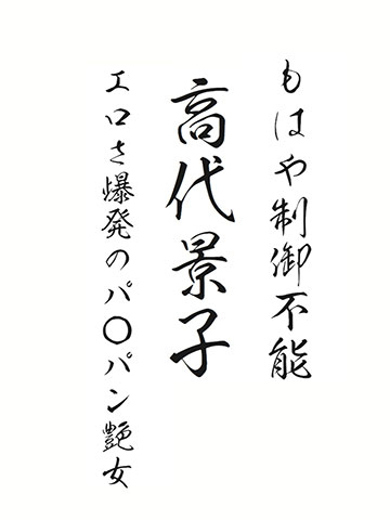 もはや制御不能
高代景子
エロさ爆発のパ〇パン艶女